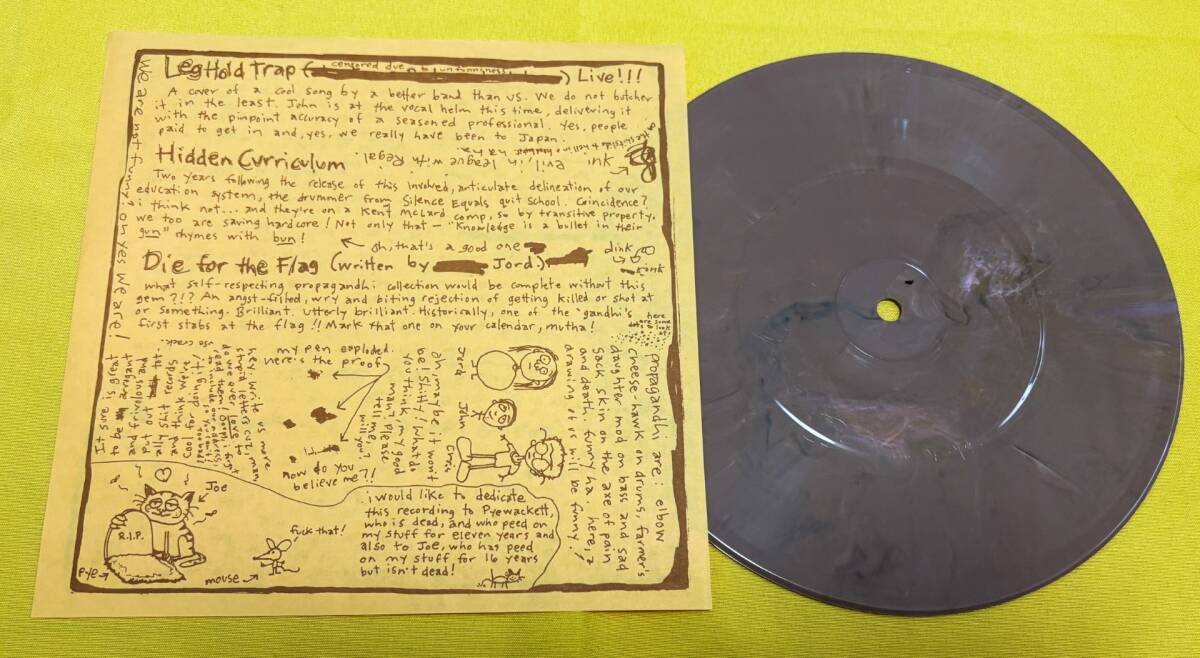 Leg Hold Trap (censored due to unfunnyness) Live!!!
A cover of a cool song by a better band than us. We do not butcher
it in the least. John is at the vocal helm this time, delivering it
with the pinpoint accuracy of a seasoned professional. Yes, people
paid to get in and, yes, we really have been to Japan.
ha ha.
ink evil, in league with Regal
Hidden Curriculum
Two years following the release of this involved, articulate delineation of our
education system, the drummer from Silence Equals quit school. Coincidence?
i think not... and they're on a Kent McLard comp, so by transitive property,
we too are saving hardcore! Not only that - "Knowledge is a bullet in their
gun" rhymes with bun!
oh, that's a good one
dink
oink
Die for the Flag (written by Jord)
What self-respecting propagandhi collection would be complete without this
gem?!? An angst-filled, wry and biting rejection of getting killed or shot at
or something. Brilliant. Utterly brilliant. Historically, one of the 'gandhi's
first stabs at the flag!! Mark that one on your calendar, mutha!
here
are some
dots to
look
at
we are not funny. oh yes we are!
my pen exploded.
here's the proof
now do you
believe me?!!
oh maybe it won't
be! shitty! what do
you think, my good
man? please
tell me,
will you?
Jord
John
Chris
propagandhi are: elbow
cheese-hawk on drums, farmer's
daughter mod on bass and sad
sack skin on the axe of pain
and death. funny ha. here's a
drawing of us. will it be funny?
hey, write us more
stupid letters cuz, man,
do we ever love to
read them. oops i forgot
to include our address.
It sure is
great to be
arrogant
and frivolous
and put out
records
and think we're
R.I.P.
Joe
pye
mouse
fuck that!
i would like to dedicate
this recording to Pyewackett,
who is dead, and who peed on
my stuff for eleven years and
also to Joe, who has peed
on my stuff for 16 years
but isn't dead!